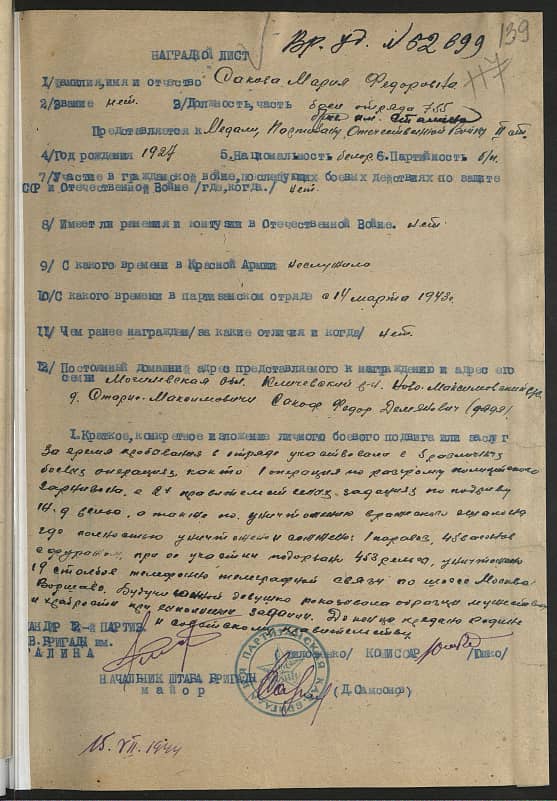 139
Вр. уд. №52699
117
НАГРАДНОЙ ЛИСТ
1/Фамилия,имя и отчество Сакова Мария Федоровна
2/Звание нет. 3/Должность,часть боец отряда 755
бриг. им. Сталина
Представляется к Медали, Партизану Отечественной Войны II ст.
4/Год рождения 1924 5.Национальность белор. 6.Партийность б/п.
7/Участие в гражданской войне,последующих боевых действиях по защите
СССР и Отечественной Войне /где,когда./ нет.
8/ Имеет ли ранения и контузии в Отечественной Войне. нет.
9/ С какого времени в Красной Армии неслужила
10/С какого времени в партизанском отряде с 14 марта 1943г.
11/ Чем ранее награжден/за какие отличия и когда/ нет.
12/ Постоянный домашний адрес представляемого к награждению и адрес его
семьи Могилевская обл. Кличевский р-н. Ново-Максимовский с/с.
д. Старые-Максимовичи Сакоф Федор Демянович (дядя)
1.Краткое,конкретное изложение личного боевого подвига или заслуг
За время пребывания в отряде участвовала в 5 различных
боевых операциях, как то 1 операция по разгрому полицейского
гарнизона, в 2х правительственных заданиях по подрыву
ж.д. а также по уничтожению вражеского эшелона
где полностью уничтожены 1 паровоз, 45 вагонов
с фуражом, при ее участии подорвано 453 рельса, уничтожено
19 столбов телефонно телеграфной связи по шоссе Москва
Варшава. Будучи девушкой показывала образцы мужества
и храбрости при выполнении заданий. До конца предана Родине
и советскому правительству.
КОМАНДИР 12-й ПАРТИЗ.
КАВ.БРИГАДЫ им.
СТАЛИНА / КОМИССАР /
НАЧАЛЬНИК ШТАБА БРИГАДЫ
майор (Д.Самсонов)
15.VII.1944